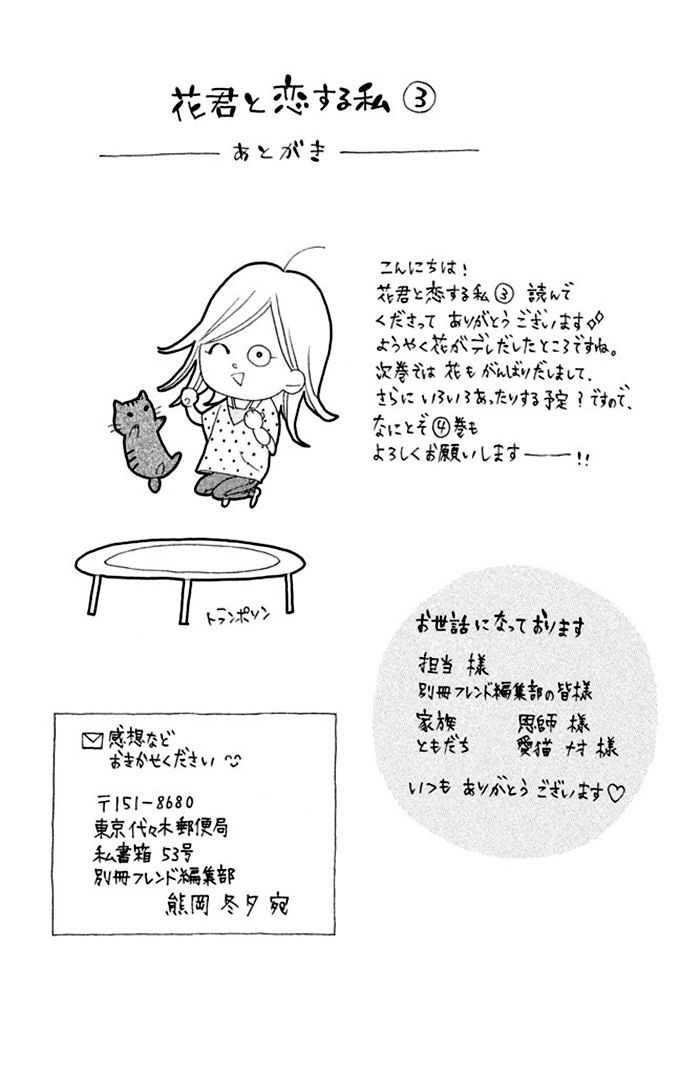 花君と恋する私 ③
あとがき
こんにちは！
花君と恋する私 ③ 読んで
くださって ありがとうございます
ようやく花がデレだしたところですね。
次巻では 花もがんばりだしまして、
さらに いろいろあったりする予定？ですので、
なにとぞ ④巻も
よろしくお願いします――!!
トランポリン
お世話になっております
担当 様
別冊フレンド編集部の皆様
家族 恩師 様
ともだち 愛猫 様
いつも ありがとうございます♡
感想など
おきかせください
〒151-8680
東京代々木郵便局
私書箱 53号
別冊フレンド編集部
熊岡 冬夕 宛